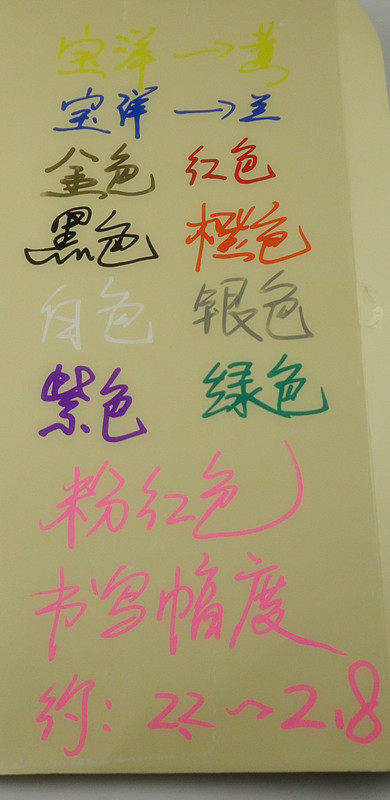 宝洋→黄
宝洋→兰
金色 红色
黑色 橙色
白色 银色
紫色 绿色
粉红色
书写幅度
约: 2.2~2.8